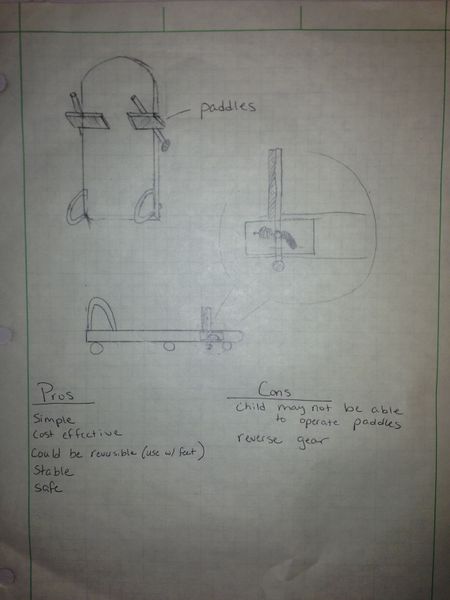 paddles
Pros
Simple
Cost effective
Could be revusible (use w/ feet)
Stable
Safe
Cons
Child may not be able
to operate paddles
reverse gear